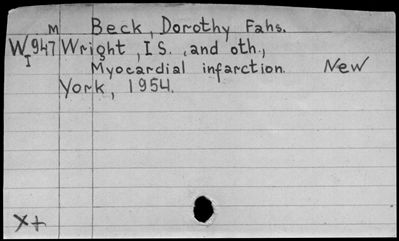 M Beck, Dorothy Fahs.
W947 Wright, I S. ,and oth.,
I Myocardial infarction. New
York, 1954.
X+